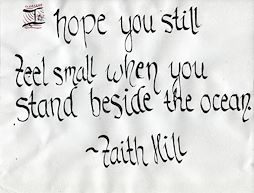 I hope you still
feel small when you
stand beside the ocean
~Faith Hill